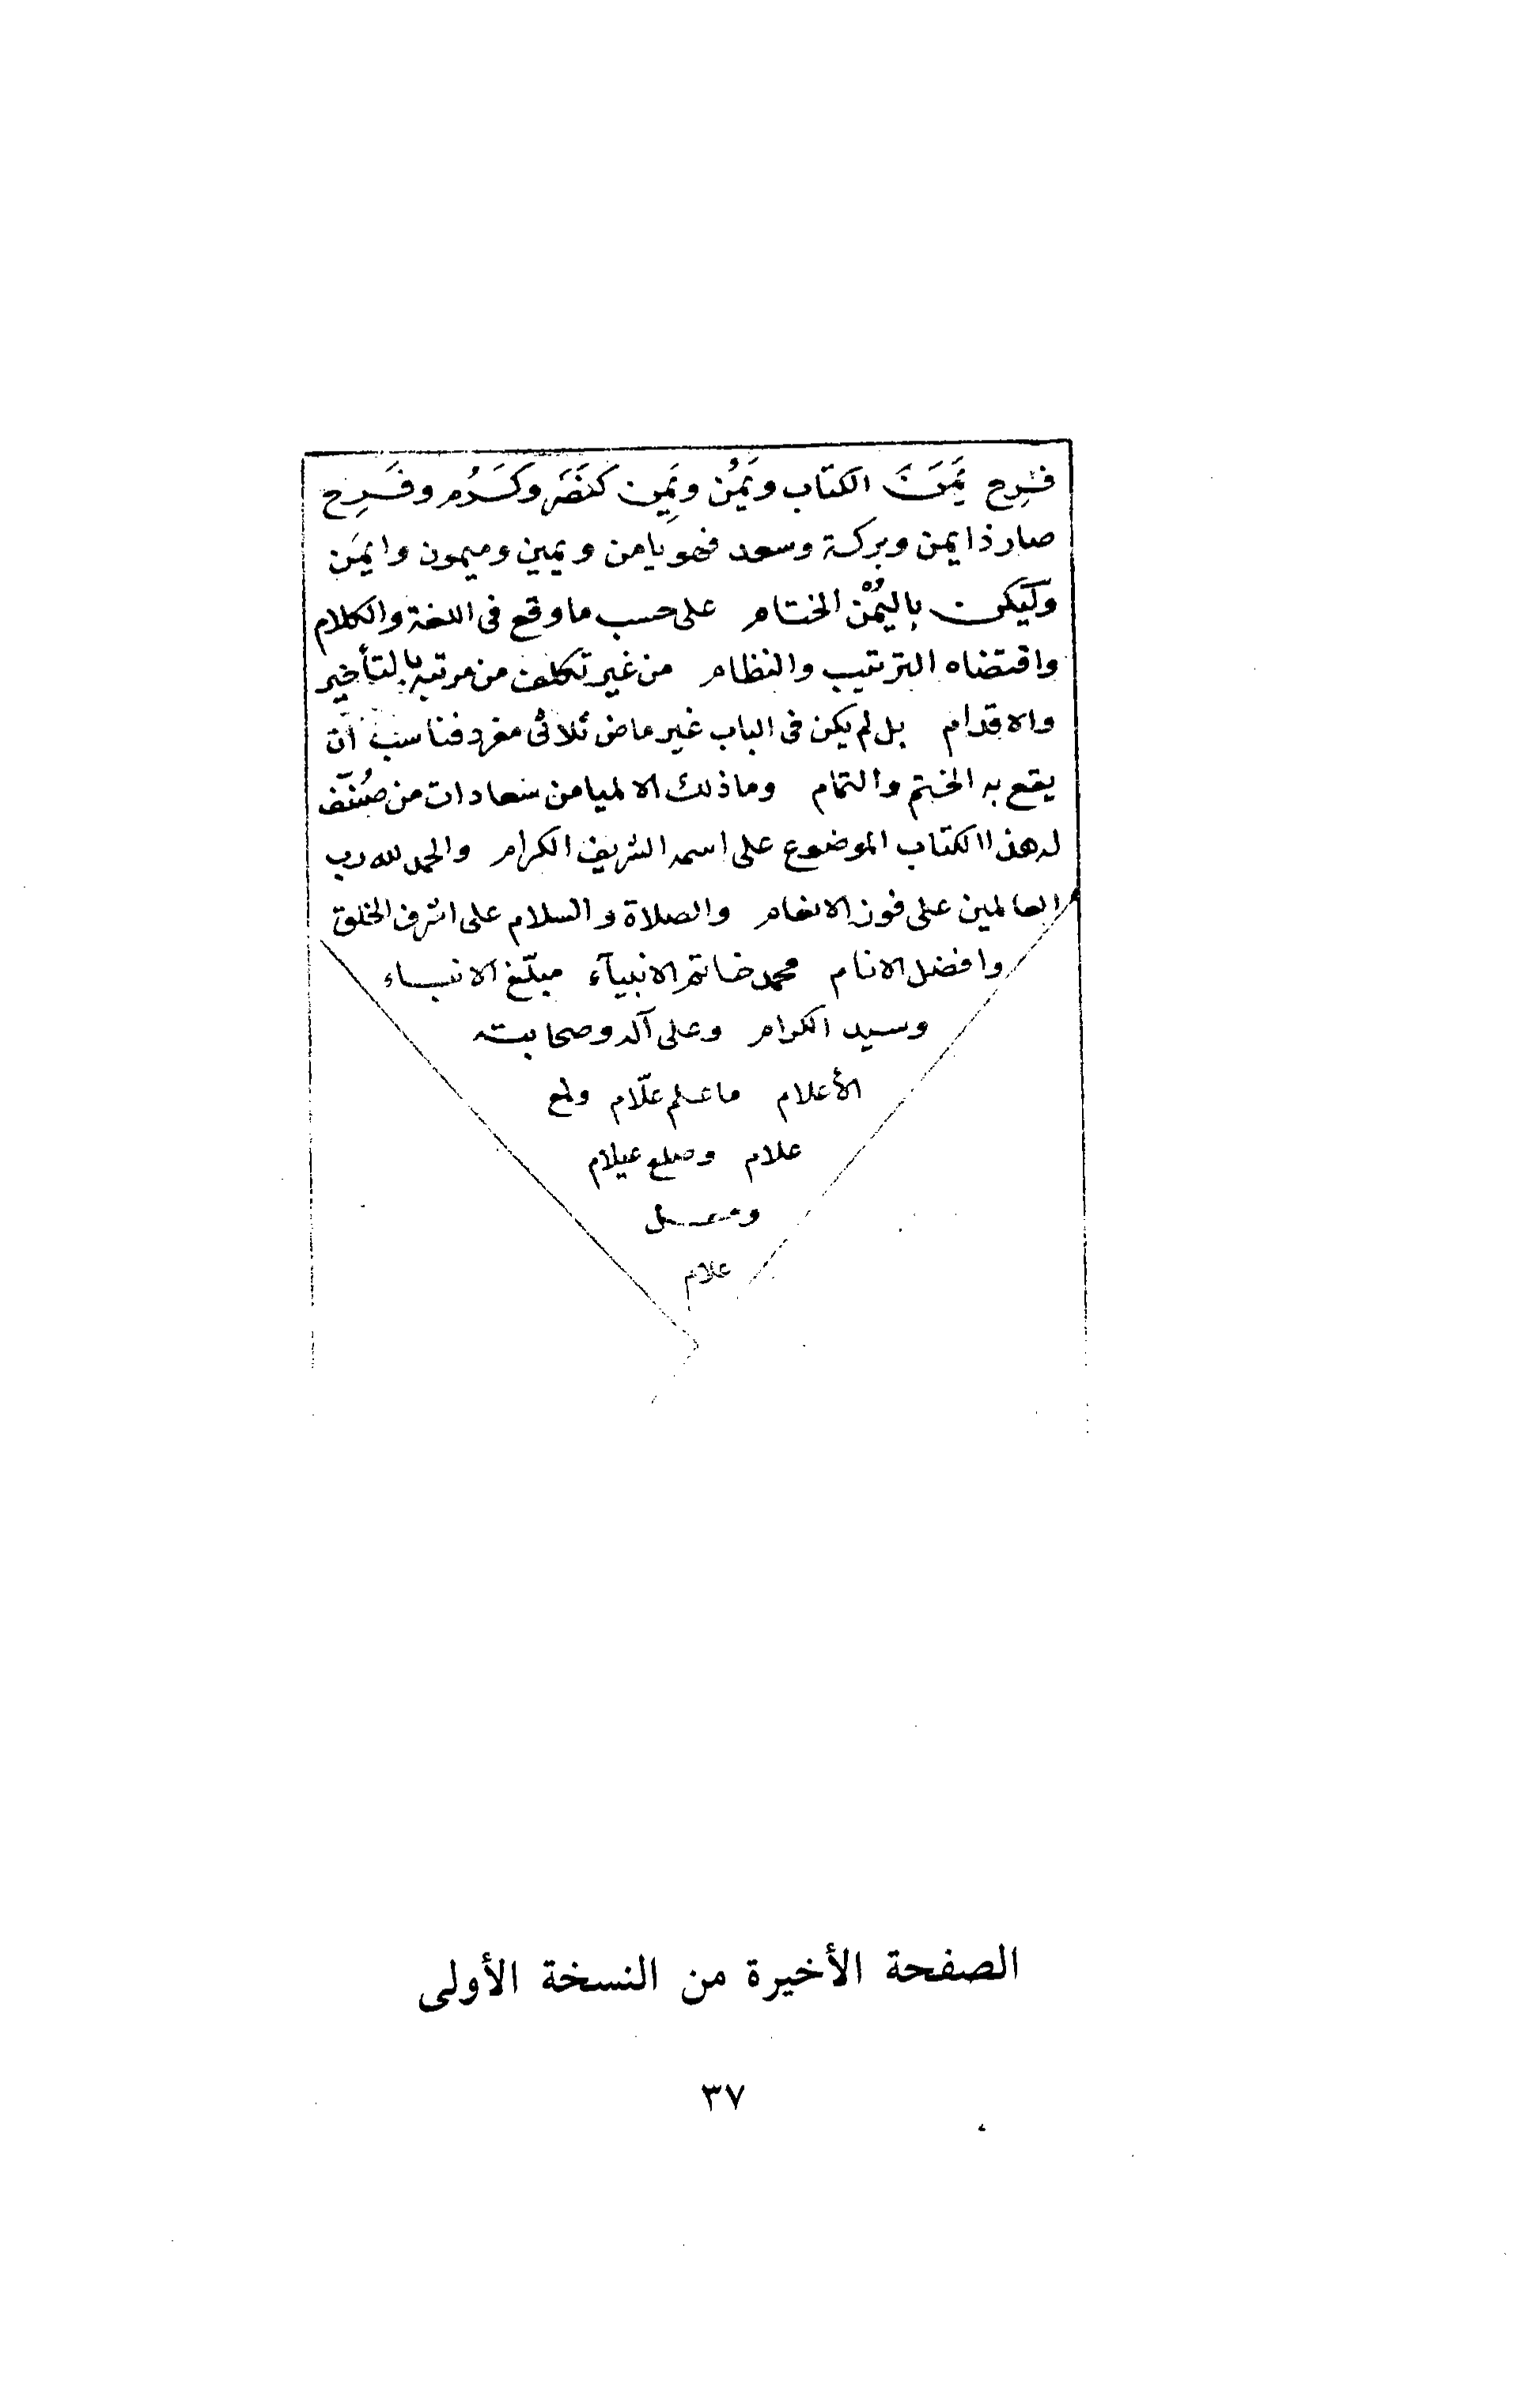 فَرِح يَمَنَ الكتاب ويَمُن ويَمِن كنَصَر وكَرُم وفَرِح
صار ذا يمن وبركة وسعد فهو يامن ويمين وميمون وايمَن
وليكن باليُمْن الختام على حسب ما وقع فى اللغة والكلام
واقتضاه الترتيب والنظام من غير تكلف من مرتبه بالتأخير
والاقدام بل لم يكن فى الباب غير ماض ثلاثى مفرد فناسب أن
يقع به الختم والتمام وما ذلك الا لميامن سعادات من صُنّف
له هذا الكتاب الموضوع على اسمه الشريف الكرام والحمد لله رب
العالمين على فوز الانعام والصلاة والسلام على اشرف الخلق
وافضل الانام محمد خاتم الانبيآء مبلّغ الانباء
وسيد الكرام وعلى آله وصحابته
الأعلام ما علم علّام ولمع
علام وضلع عيلام
علام
الصفحة الأخيرة من النسخة الأولى
٣٧